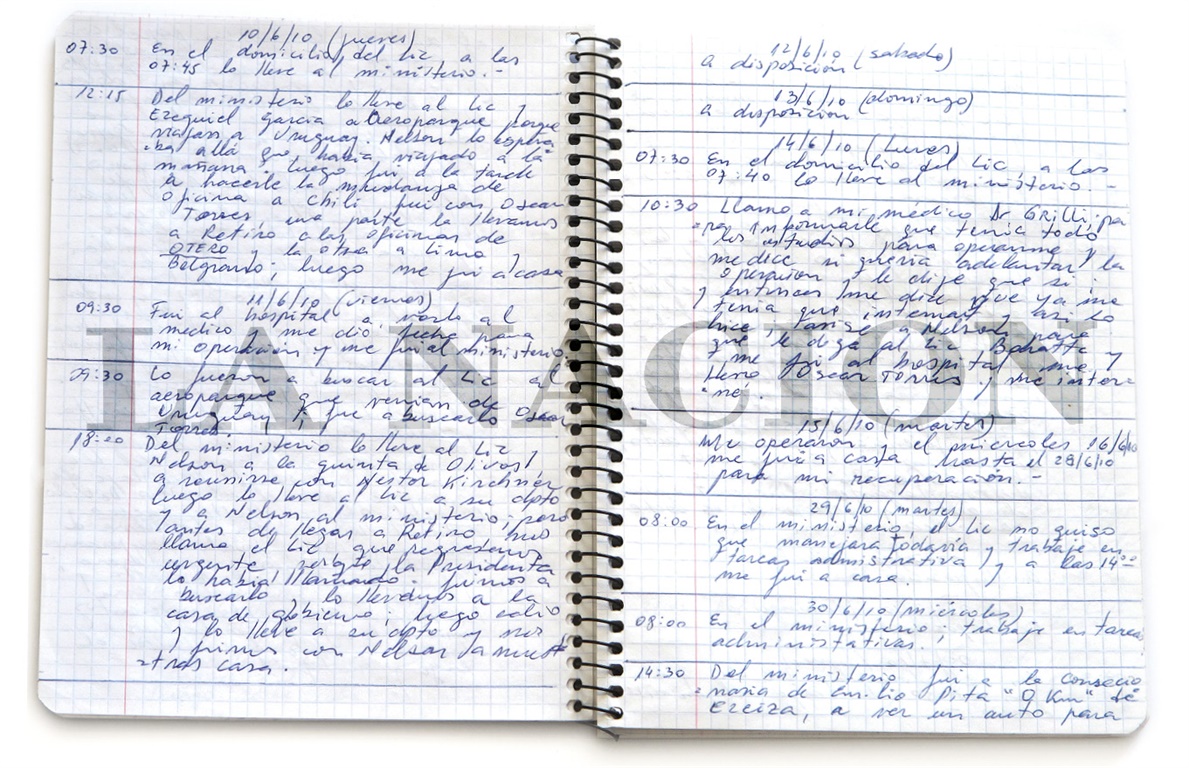 10/6/10 (jueves)
07:30 En el domicilio del Lic a las
07:45 lo lleve al ministerio.-
12:15 Del ministerio lo lleve al Lic y
Ezequiel Garcia a Aeroparque porque
viajan a Uruguay. Nelson lo espera
ba allá que había viajado a la
mañana. Luego fui a la tarde
a hacerle la mudanza de
oficina a Chili fui con Oscar
Torres, una parte la llevamos
a Retiro a las oficinas de
OTERO y la otra a Lima y
Belgrano; luego me fui a casa
11/6/10 (viernes)
09:30 Fui al hospital a verlo al
medico y me dió fecha para
mi operación y me fui al ministerio.
09:30 Lo fueron a buscar al Lic al
aeroparque que venian de
Uruguay, fue a buscarlo Oscar
Torres.
18:20 Del ministerio lo lleve al Lic y
Nelson a la quinta de Olivos
a reunirse con Nestor Kirchner
luego lo lleve a Lic a su dpto
y a Nelson al ministerio, pero
antes de llegar a Retiro nos
llama el Lic que regresemos
urgente porque la Presidenta
lo había llamado. fuimos a
buscarlo y lo llevamos a la
casa de gobierno, luego salio
y lo lleve a su dpto y nos
fuimos con Nelson a nues
tras casa.
12/6/10 (sabado)
a disposición
13/6/10 (domingo)
a disposición
14/6/10 (lunes)
07:30 En el domicilio del Lic. a las
07:40 lo lleve al ministerio.-
10:30 Llamo a mi médico Dr. GRilli pa
ra informarle que tenia todo
los estudios para operarme y
me dice si queria adelantar la
operación y le dije que si
y entonces me dice que ya me
tenia que internar y asi lo
hice, avise a Nelson para
que le diga al Lic Baratta
y me fui al hospital me
llevo Oscar Torres y me inter
né.
15/6/10 (martes)
Me operaron y el miercoles 16/6/10
me fui a casa hasta el 28/6/10
para mi recuperación.-
29/6/10 (martes)
08:00 En el ministerio el Lic no quiso
que manejara todavía y trabaje en
tareas administrativa y a las 14°°
me fui a casa.
30/6/10 (miércoles)
08:00 En el ministerio; trabaje en tarea
administrativas.
14:30 Del ministerio fui a la consecio
naria de Emilio Pita "O Km" de
Ezeiza, a ver un auto para
LA NACION